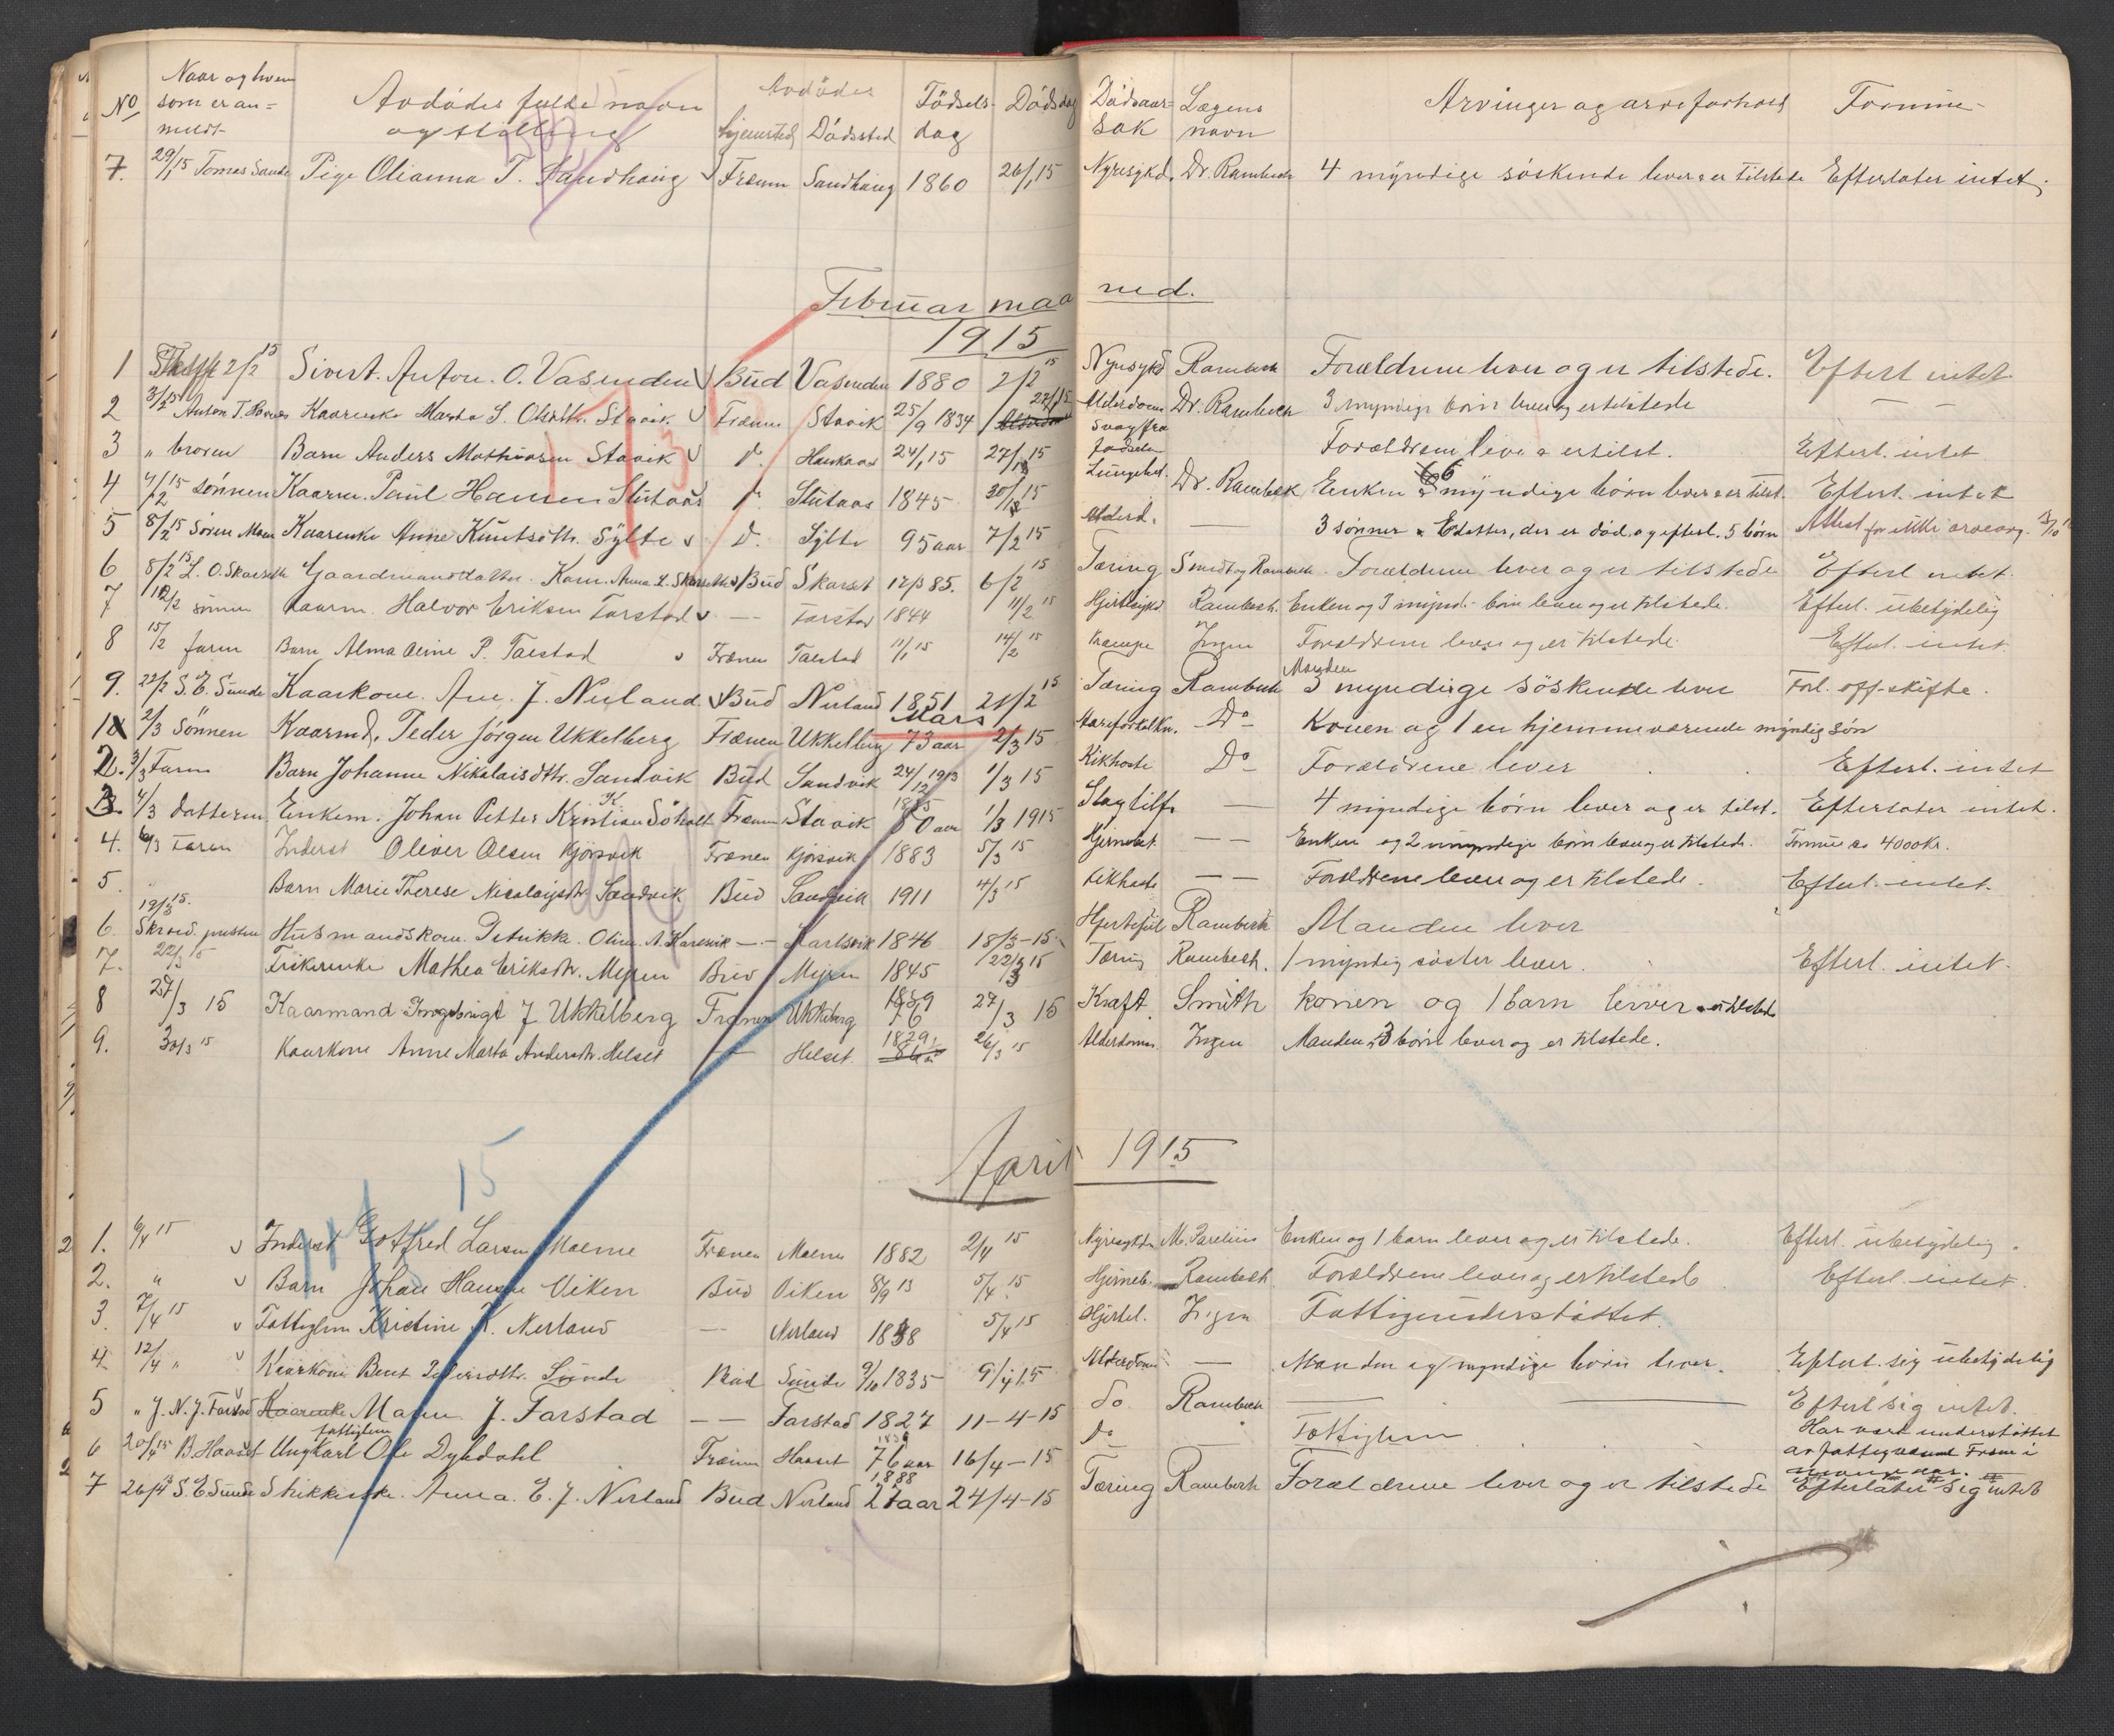 No Naar og hvem som er an= meldt Avdødes fulde navn og stilling Avdødes hjemsted Dødssted Fødsels- dag Dødsdag Dødsaar= sak Lægens navn Arvinger og arveforhold Formue-
7. 29/1 15 Tomas Sande Pige Olianna T. Sandhaug Frænen Sandhaug 1860 26/1 15 Nyresykd. Dr. Rambech 4 myndige søskende lever & er tilstede Efterlater intet.
Februar maa ned.
1915
1 2/2 15 Sivert Anton O. Vasenden Bud Vasenden 1880 2/2 15 Nyresykd Rambech Forældrene lever og er tilstede. Efterl intet
2 3/2 15 Anton T. Kaarenke Marta S. Olsdtr. Stavik Frænen Stavik 25/9 1834 27/1 15 Alderdom Dr. Rambech 3 myndige børn lever og er tilstede — —
3 " broren Barn Anders Mathiasen Stavik d. 24/1 15 27/1 15 Svag fra fødselen Forældrene lever & er tilst. Efterl. intet
4 4/2 15 sønnen Kaarm. Paul Hansen Stutaas d. Stutaas 1845 30/1 15 Lungebet. Dr. Rambech Enken & 6 myndige børn lever & er tilst. Efterl. intet
5 8/2 15 Søren Moen Kaarenke Anne Knutsdtr. Sylte d. Sylte 95 aar 7/2 15 Alderd. — 3 sønner & 1 datter, der er død, og efterl. 5 børn Attest for
6 8/2 15 L. O. Skarseth Gaardmandsdatter Karn. Anna L. Skarseth Bud Skarset 17/3 85. 6/2 15 Tæring Smidt og Rambech Forældrene lever og er tilstede Efterl intet.
7 12/2 sønnen Kaarm. Halvor Eriksen Farstad — Farstad 1844 11/2 15 Hjertesykd Rambech. Enken og 3 mynd. børn lever og er tilstede. Efterl. ubetydelig
8 15/2 faren Barn Alma Oline P. Talstad Frænen Talstad 11/1 15 14/2 15 Krampe Ingen Forældrene lever og er tilstede. Efterl. intet.
9. 22/2 S. E. Sunde Kaarkone. Ane. J. Nerland Bud Nerland 1851 21/2 15 Tæring Rambech Manden 3 myndige søskende lever Forl. off. skifte.
Mars
1 2/3 Sønnen Kaarmd. Peder Jørgen Ukkelberg Frænen Ukkelberg 73 aar 2/3 15 Aareforkalkn. Do Konen og 1 en hjemmeværende myndig søn
2. 3/3 Faren Barn Johanne Nikolaisdtr. Sandvik Bud Sandvik 24/12 1913 1/3 15 Kikhoste Do Forældrene lever Efterl. intet
3. 4/3 datteren Enkem. Johan Petter Kristian Søholt Frænen Stavik 1835 80 aar 1/3 1915 Slagtilf. — 4 myndige børn lever og er tilst. Efterlater intet.
4. 6/3 Faren Inderst Oliver Olsen Kjørsvik Frænen Kjørsvik 1883 5/3 15 Hjernebet. — — Enken og 2 umyndige børn lever og er tilstede. Formue ca 4000 Kr.
5. Barn Marie Therese Nicolaysdtr Sandvik Bud Sandvik 1911 4/3 15 Kikhoste — — Forældrene lever og er tilstede. Efterl. intet.
6. 19/3 15. Skrivd. presten Husmandskone. Petrikke Oline A. Karlsvik — Karlsvik 1846 18/3-15. Hjertefeil Rambech Manden lever
7. 22/3 15 Mathea Eriksdtr. Mejren Bud Mejren 1845 22/3 15 Tæring Rambech. 1 myndig søster lever. Efterl. intet.
8 27/3 15 Kaarmand Ingebrigt J Ukkelberg Frænen Ukkelberg 1839 76 27/3 15 Kræft Smith konen og 1 barn lever & er tilstede
9. 30/3 15 Kaarkone Anne Marta Andersdtr. Helset — Helset 1829 26/3 15 Alderdoms. Ingen Manden & 3 børn lever og er tilstede.
15
April 1915
1. 6/4 15 Inderst Gotfred Larsen Malme Frænen Malme 1882 2/4 15 Nyresykdm M. Parelius Enken og 1 barn lever og er tilstede. Efterl. ubetydelig.
2. " Barn Johan Hansen Viken Bud Viken 8/9 13 5/4 15 Hjerneb. Rambech. Forældrene lever og er tilstede Efterl. intet.
3. 7/4 15 Fattiglem Kristine K. Nerland — Nerland 1838 5/4 15 Hjertel. Ingen Fattigunderstøttet.
4 12/4 " Kaarkone Berit Pedersdtr. Sunde Bud Sunde 9/10 1835 9/4 15 Alderdom — Manden og myndige børn lever. Efterl. sig ubetydelig
5 " J. N. J. Farstad Kaarenke Maren J. Farstad — — Farstad 1827 11-4-15 do Rambech — — Efterl sig intet.
6 20/4 15 B. Haaset fattiglem Ungkarl Ole Dyhdahl Frænen Haaset 1839 76 aar 16/4-15 do — Fattiglem Har vært understøttet av fattigvæsenet Fræn i
7 26/4 S. E. Sunde Anna. E. J. Nerland Bud Nerland 1888 27 aar 24/4-15 Tæring Rambech Forældrene lever og er tilstede Efterlater sig intet